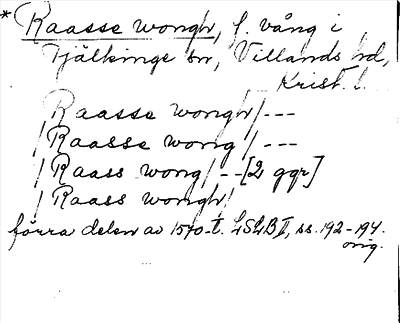 * Raasse wongh, f. vång i
Fjälkinge sn, Villands hd,
Krist. l.
/ Raasse wongh / ---
/ Raasse wong / ---
/ Raass wong / -- [2 ggr]
/ Raass wongh /
förra delen av 1570-t. LSLB II, ss. 192-194.
orig.